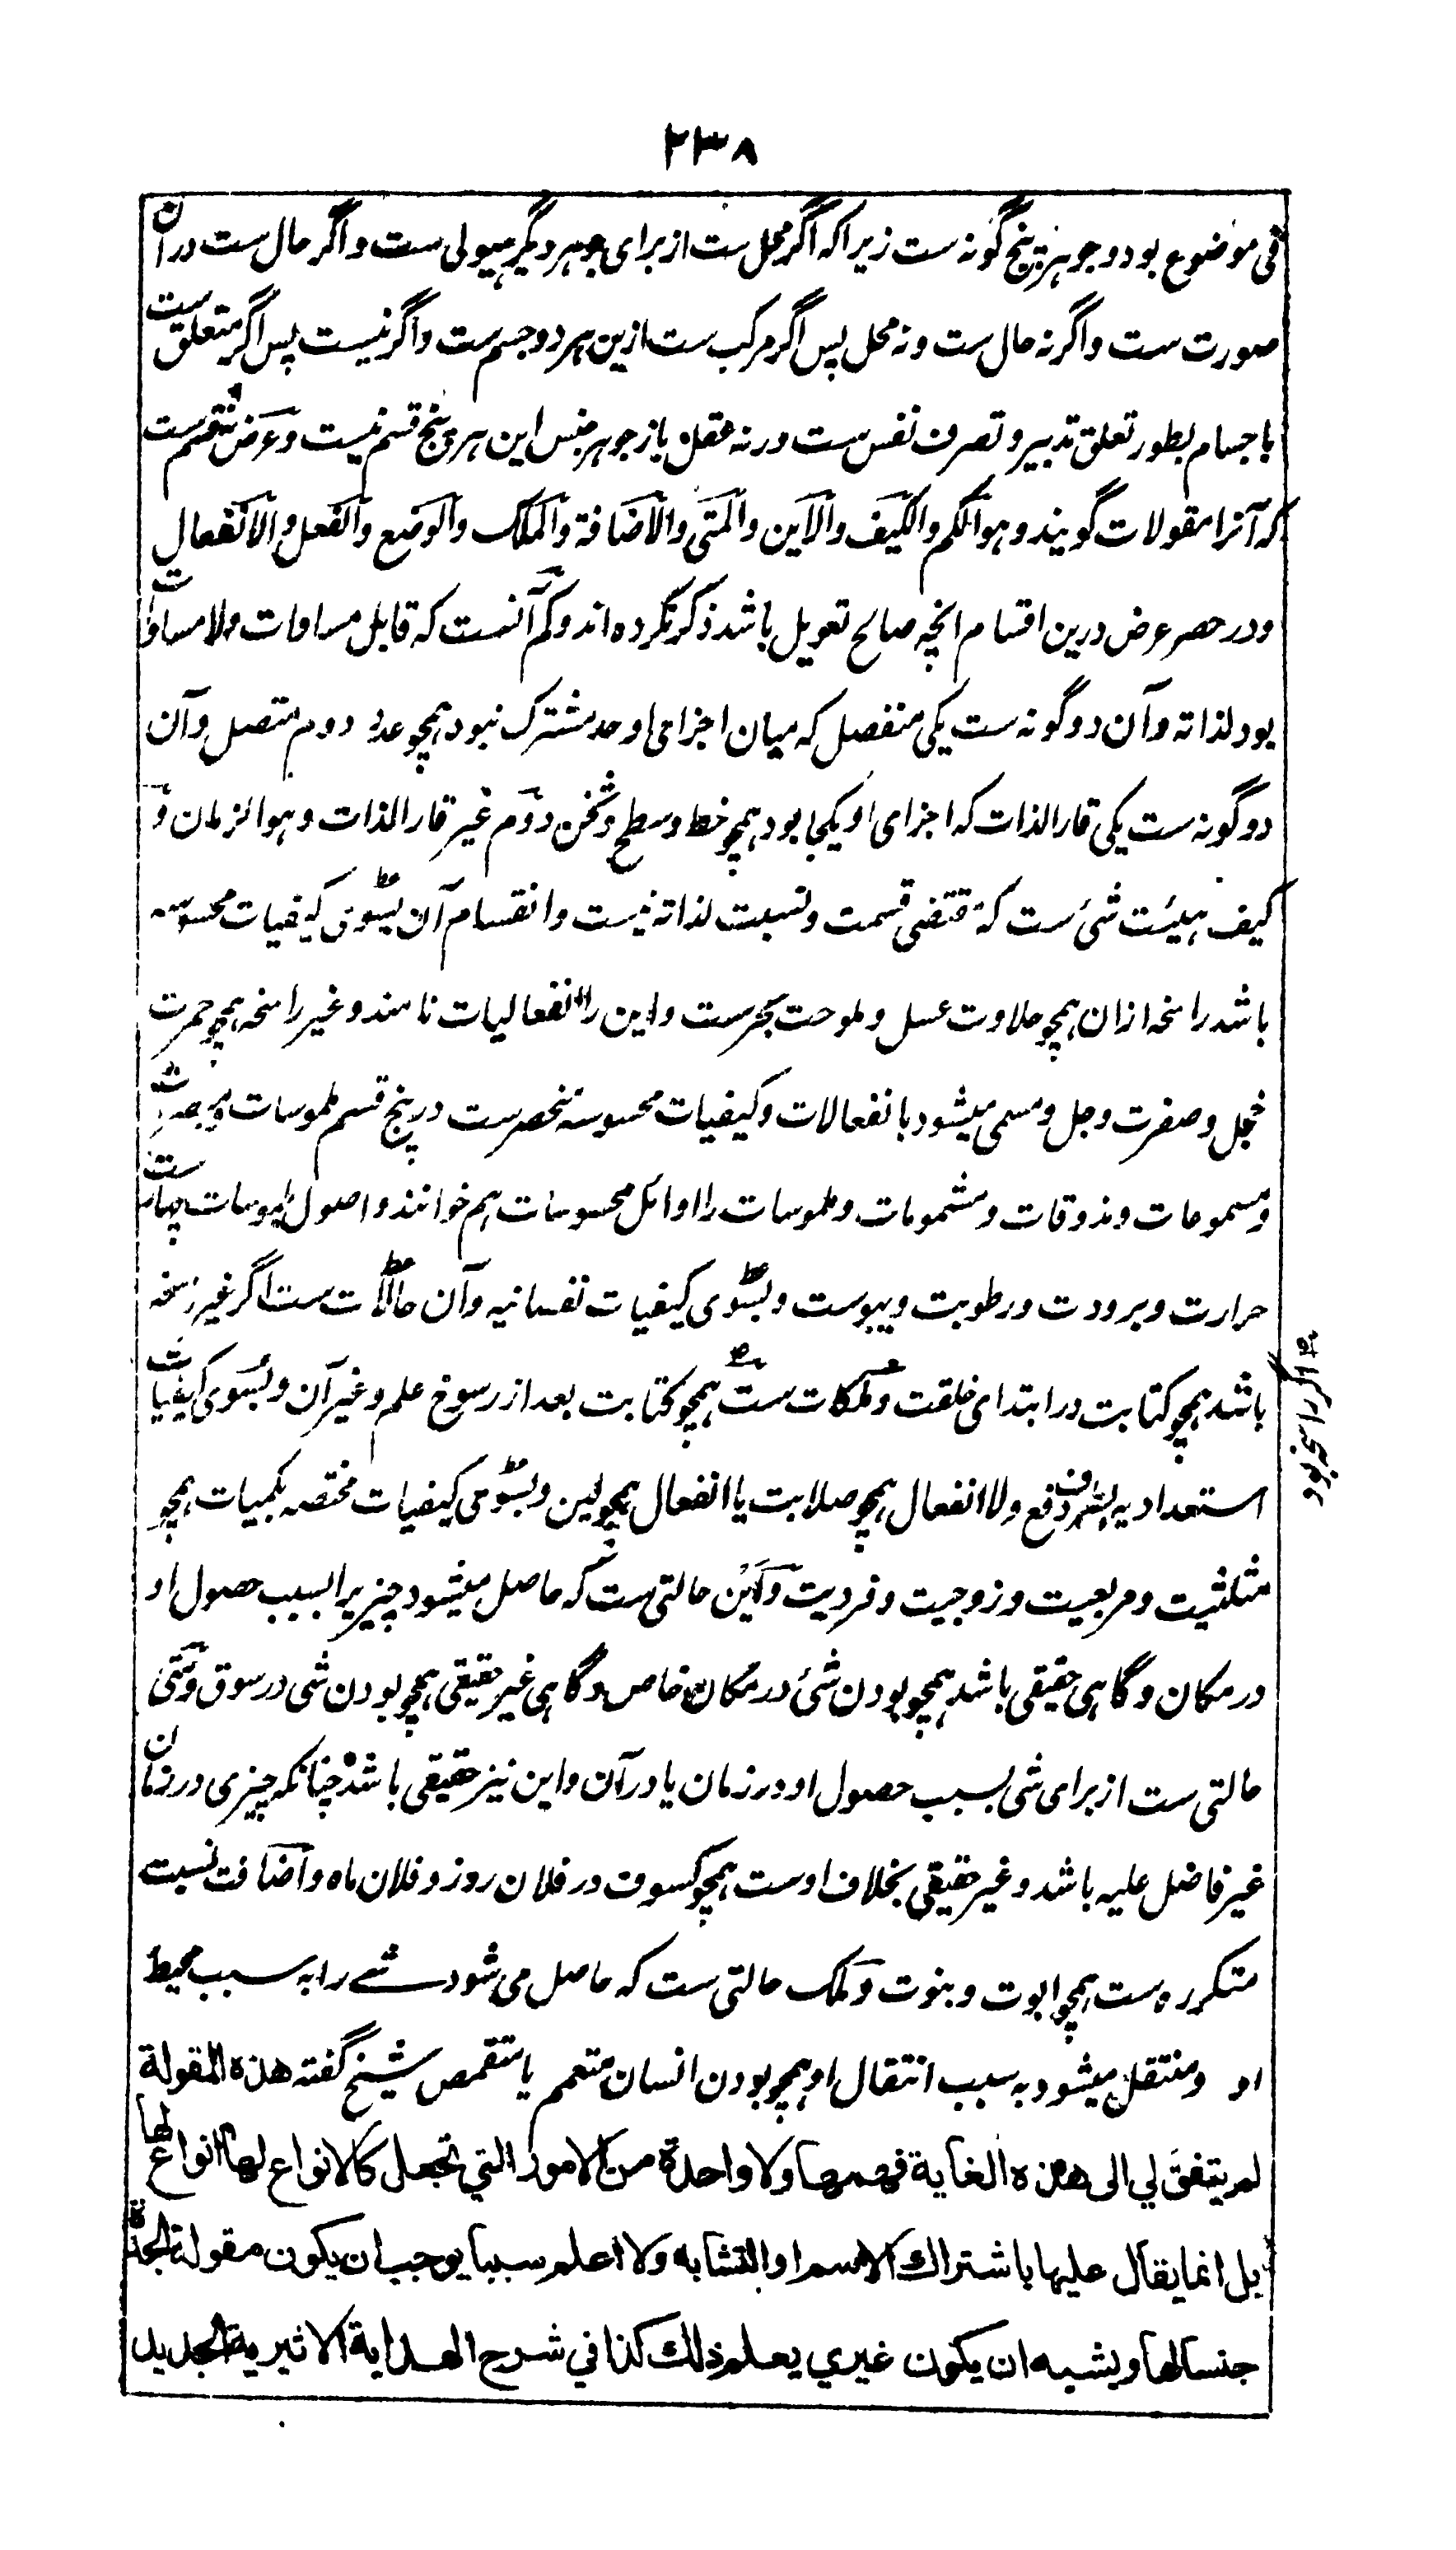 ۲۳۸
فی موضوع بود و جوهر پنج گونه ست زیرا که اگر محل ست از برای جوهر دیگر هیولی ست و اگر حال ست در آن
صورت ست و اگر نه حال ست و نه محل پس اگر مرکب ست ازین هر دو جسم ست و اگر نیست پس اگر متعلق ست
باجسام بطور تعلق تدبیر و تصرف نفس ست ورنه عقل باز جوهر جنس این هر پنج قسم نیست و عَرَض نُه قسم ست
که آنرا مقولات گویند و هو الکم والکیف والاین والمتی والاضافة والملک والوضع والفعل والانفعال
و در حصر عرض درین اقسام انچه صالح تعویل باشد ذکر نکرده اند و کم آنست که قابل مساوات و لا مساوات
بود لذاته و آن دو گونه ست یکی منفصل که میان اجزای او حد مشترک نبود همچو عدد دوم متصل و آن
دو گونه ست یکی قار الذات که اجزای او یکجا بود همچو خط و سطح و ثخن دوم غیر قار الذات و هو الزمان و
کیف هیئت شیء ست که مقتضی قسمت و نسبت لذاته نیست و انقسام آن بسوی کیفیات محسوسه
باشد راسخه ازان همچو حلاوت عسل و ملوحت بحرست و این را انفعالیات نامند و غیر راسخه همچو حمرت
خجل و صفرت وجل و مسمی میشود بانفعالات و کیفیات محسوسه منحصرست در پنج قسم ملموسات و مبصرات
و مسموعات و مذوقات و مشمومات و ملموسات را اوائل محسوسات هم خوانند و اصول ملموسات چهارست
حرارت و برودت و رطوبت و یبوست و بسوی کیفیات نفسانیه و آن حالات ست اگر غیر راسخه
باشد همچو کتابت در ابتدای خلقت و ملکات ست همچو کتابت بعد از رسوخ علم و غیر آن و بسوی کیفیات
اگر راسخه بود
استعدادیه بسوی دفع و لا انفعال همچو صلابت یا انفعال همچو لین و بسوی کیفیات مختصه بکمیات همچو
مثلثیت و مربعیت و زوجیت و فردیت و این حالتی ست که حاصل میشود چیزیرا بسبب حصول او
در مکان و گاهی حقیقی باشد همچو بودن شیء در مکان خاص و گاهی غیر حقیقی همچو بودن شی در سوق و متی
حالتی ست از برای شی بسبب حصول او در زمان یا در آن و این نیز حقیقی باشد چنانکه چیزی در زمان
غیر فاضل علیه باشد و غیر حقیقی بخلاف اوست همچو کسوف در فلان روز و فلان ماه و اضافت نسبت
متکرره ست همچو ابوت و بنوت و ملک حالتی ست که حاصل می شود شے را به سبب محیط
او و منتقل میشود به سبب انتقال او همچو بودن انسان متعمم یا متقمص شیخ گفته هذه المقولة
لم یتفق لي الی هذه الغایة فهمها ولا واحدة من الامور التي تجعل کالانواع لها انواع لها
بل انما یقال علیها باشتراك الاسم او التشابه ولا اعلم سببا یوجب ان یکون مقولة الجدة
جنسا لها ویشبه ان یکون غیري یعلم ذلك کذا في شرح الهدایة الاثیریة الجدید